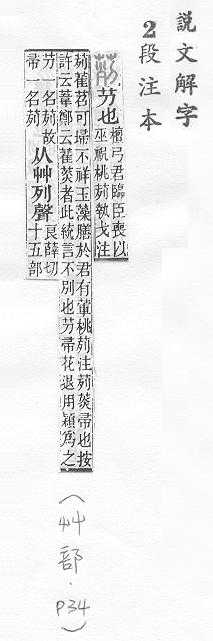 說文解字
2段注本
茢
芀也
檀弓君臨臣喪以
巫祝桃茢執戈注
茢萑苕可埽不祥玉藻膳於君有葷桃茢注茢菼帚也按
許云葦鄭云萑菼者此統言不別也芀帚花退用穎爲之
芀一名茢故
帚一名茢
从艸列聲
良薛切
十五部
(艸部.P34)